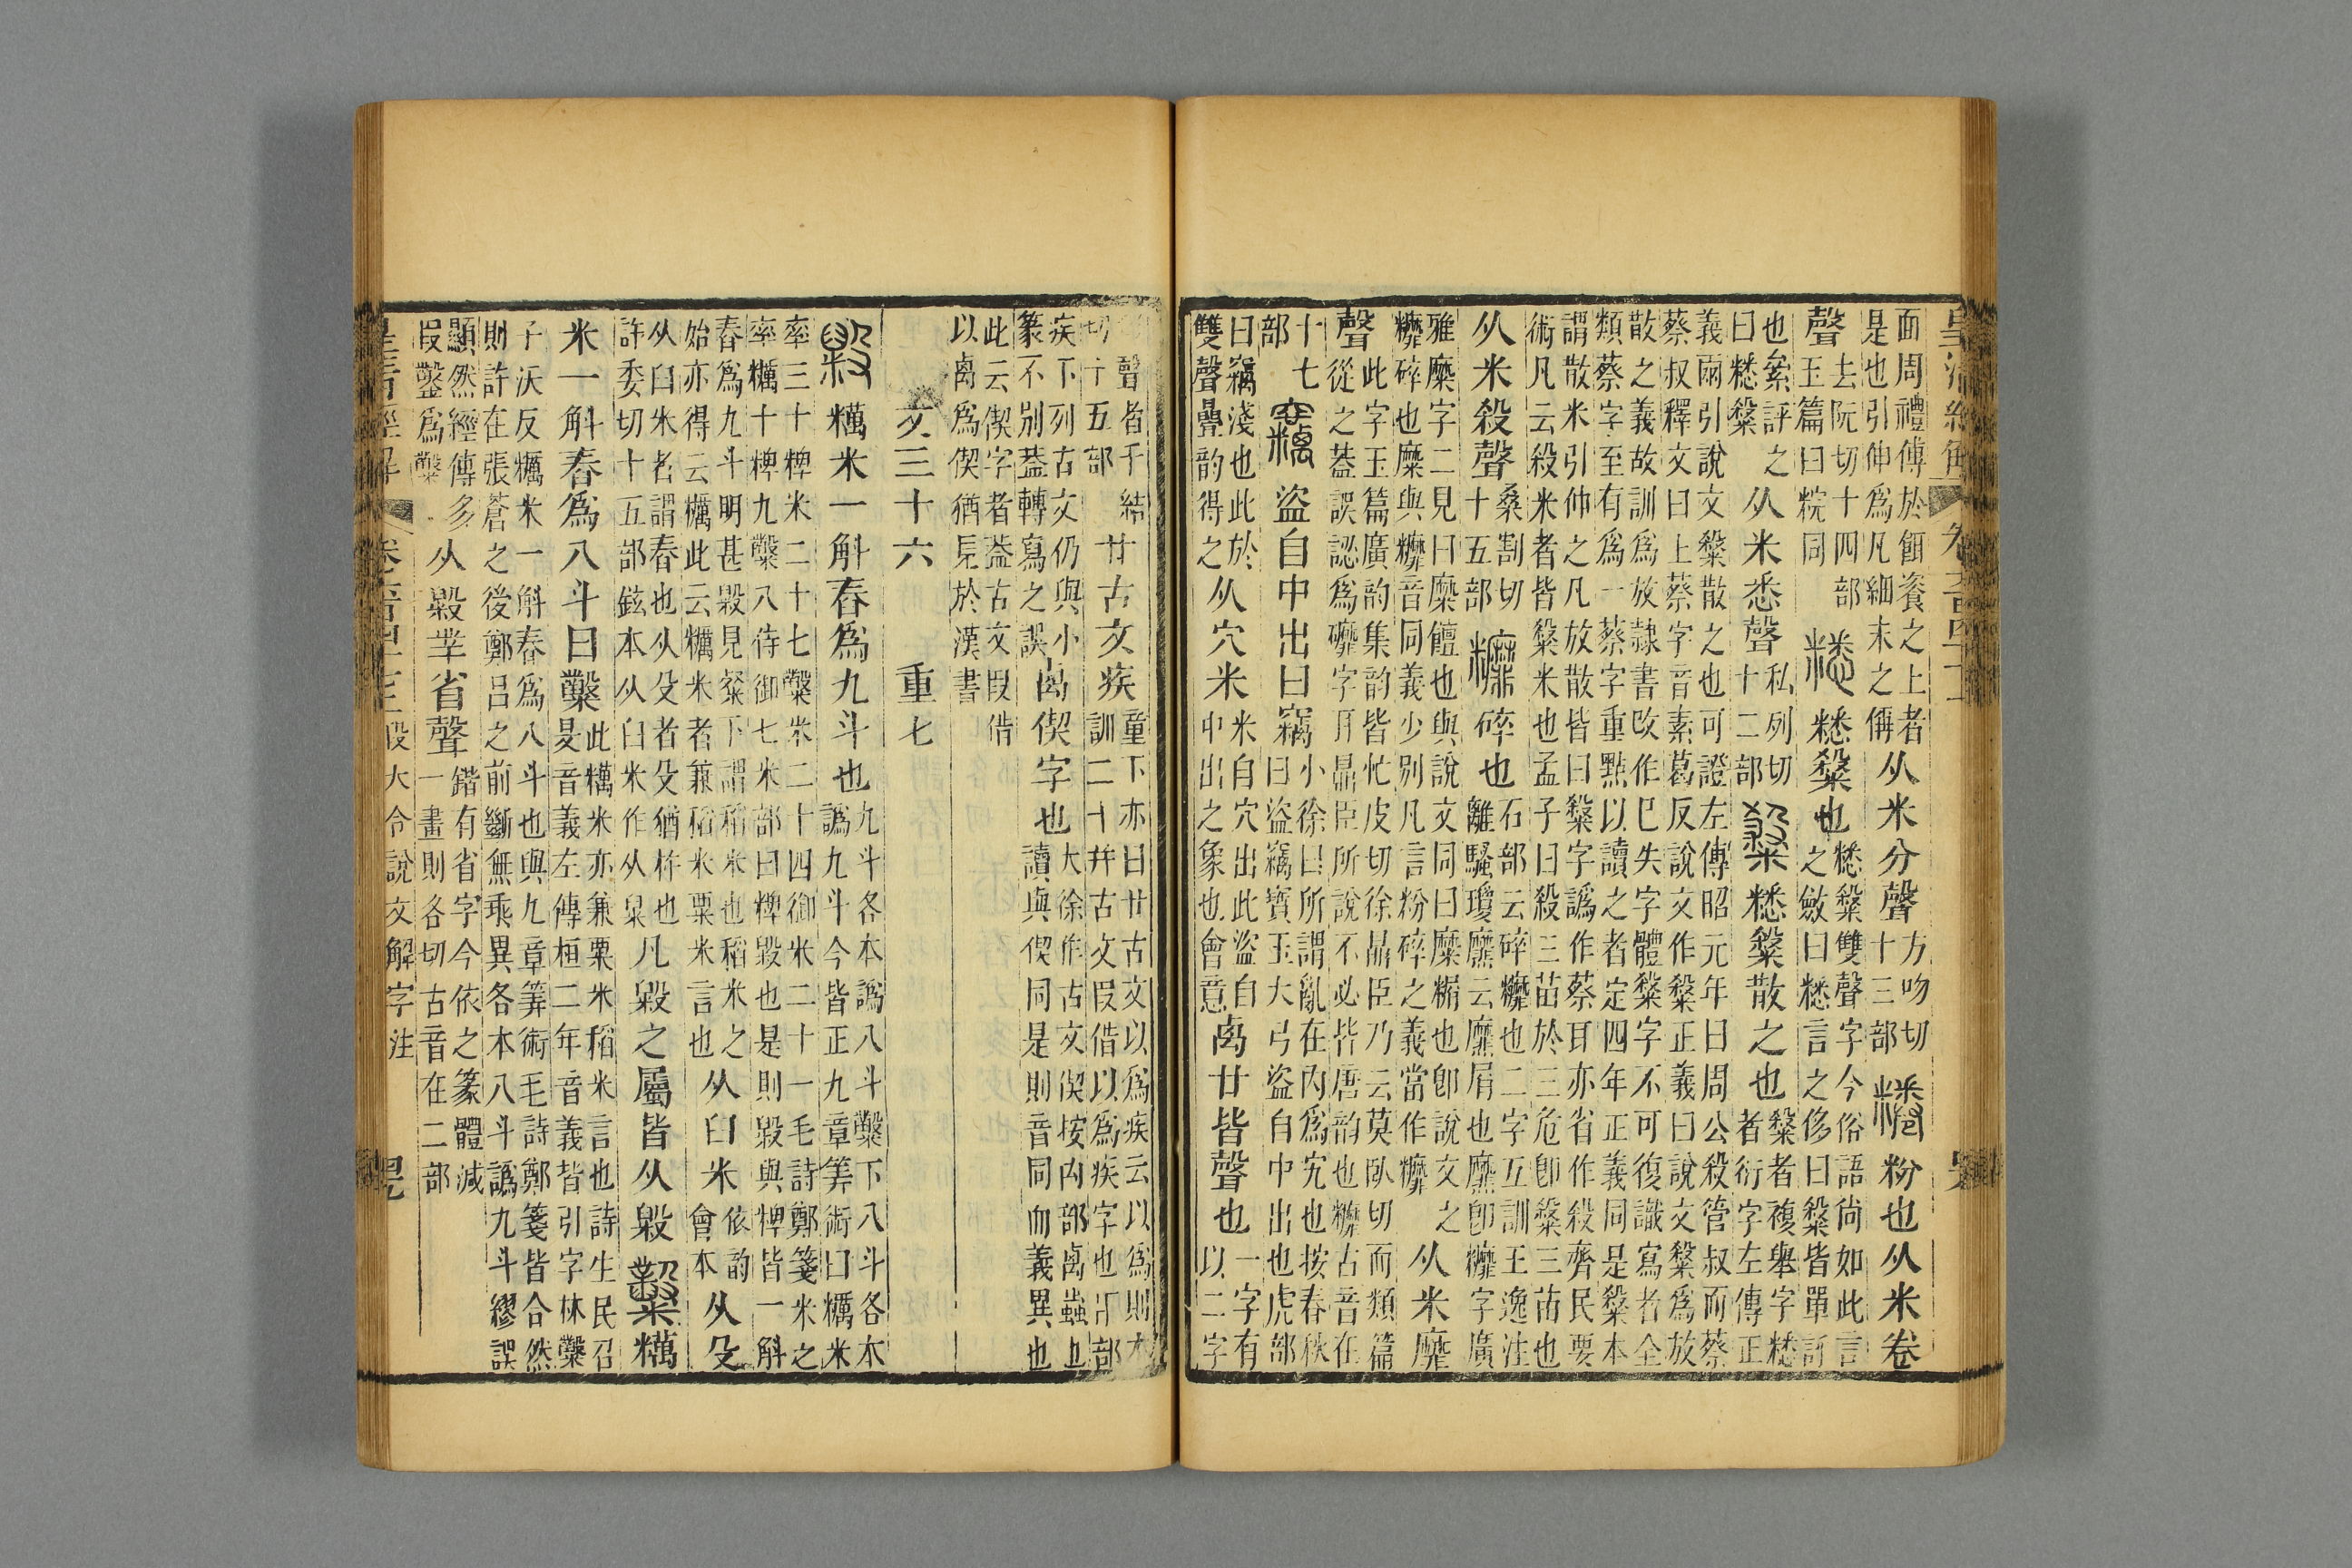 面周禮傅於餌餈之上者是也引伸爲凡細末之偁从米分聲方吻切十三部粉也从米卷
聲去阮切十四部玉篇曰同𥻦也𥻦雙聲字今俗語尚如此言之斂曰言之侈曰𥻦皆單許
也絫評之曰𥻦从米悉聲私列切十二部𥻦散之也𥻦者複舉字者衍字左傳正
義兩引說文𥻦散之也可證左傳昭元年曰周公殺管叔而蔡蔡叔釋文曰上蔡字音素葛反說文作𥻦正義曰說文𥻦爲放
散之義故訓爲放隸書改作巳失字體𥻦字不可復識寫者全類蔡字至有爲一蔡字重點以讀之者定四年正義同是𥻦本
謂散米引伸之凡放散皆曰𥻦字譌作蔡耳亦省作殺齊民要術凡云殺米者皆𥻦米也孟子曰殺三苗於三危卽𥻦三苗也
从米殺聲桑割切十五部䊳碎也石部云碎䊳也二字互訓王逸注離騷瓊爢云爢屑也爢卽䊳字廣
雅糜字二見曰糜饘也與說文同曰糜糏也卽說文之䊳碎也糜與䊳音同義少別凡言粉碎之義當作䊳从米靡
聲此字玉篇廣韵集韵皆忙皮切徐鼎臣乃云莫臥切而類篇從之葢誤認爲礳字耳鼎臣所說不必皆唐韵也䊳古音在
十七部竊盜自中出曰竊小徐曰所謂亂在內爲宄也按春秋曰盜竊寶玉大弓盜自中出也虎部
曰竊淺也此於雙聲曡韵得之从穴米米自穴出此盜自中出之象也會意禼廿皆聲也一字有以二字
聲者千結切十五部廿古文疾童下亦曰廿古文以爲疾云以爲則本訓二十幷古文叚借以爲疾字也疒部
疾下列古文仍與小篆不別葢轉寫之誤禼偰字也大徐作古文偰按禸部禼蟲也讀與偰同是則音同而義異也
此云偰字者葢古文叚借以禼爲偰猶見於漢書
文三十六 重七
糲米一斛舂爲九斗也九斗各本譌八斗糳下八斗各本譌九斗今皆正九章筭術曰糲米
率三十粺米二十七糳米二十四御米二十一毛詩鄭箋米之率糲十粺九糳八侍御七米部曰粺毇也是則毇與粺皆一斛
舂爲九斗明甚毇見粲下謂稻米也稻米之始亦得云糲此云糲米者兼稻米粟米言也从臼米會意从殳
从臼米者謂舂也从殳者殳猶杵也許委切十五部鉉本从臼米作从㿝凡毇之屬皆从毇糳糲
米一斛舂爲八斗曰糳此糲米亦兼粟米稻米言也詩生民召旻音義左傳桓二年音義皆引字林糳
子沃反糲米一斛舂爲八斗也與九章筭術毛詩鄭箋皆合然則許在張蒼之後鄭呂之前斷無乖異各本八斗譌九斗繆誤
顯然經傳多叚鑿爲糳从毇丵省聲鍇有省字今依之篆體減一畫則各切古音在二部
皇淸經解 卷六百四十七 段大令說文解字注